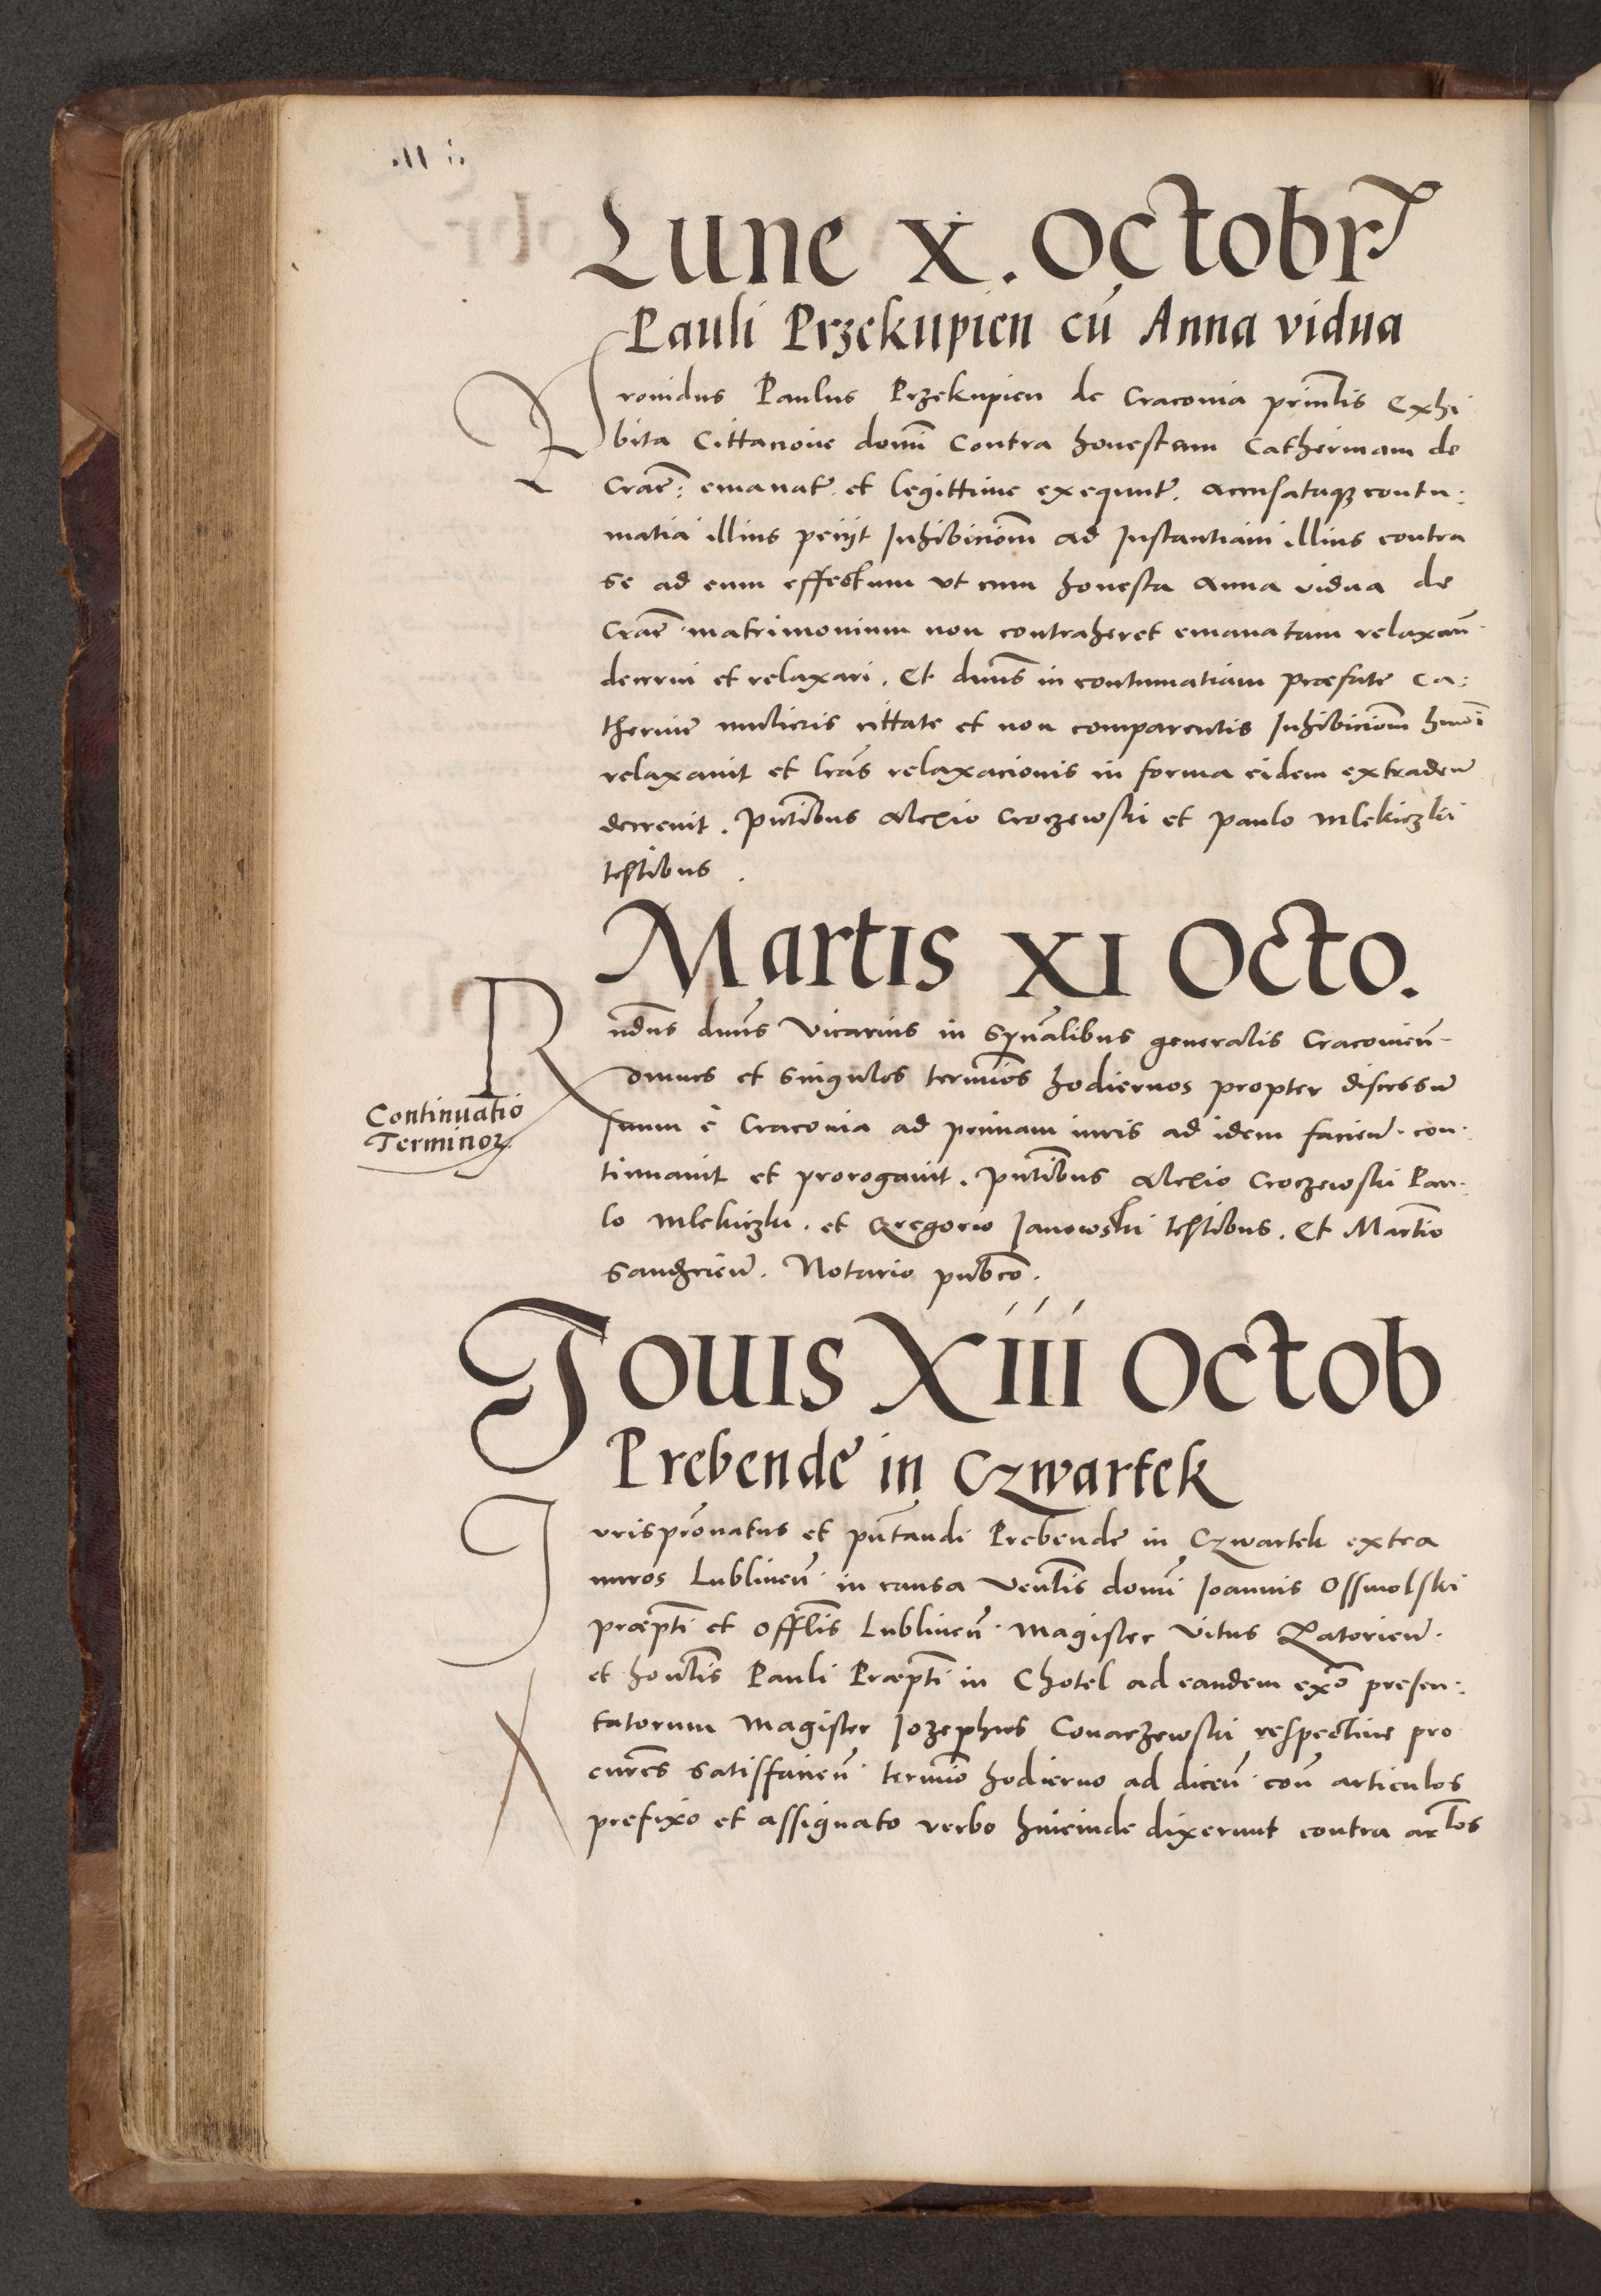 Lune X. Octobr
Pauli Przekupien cū Anna vidua
Prouidus Paulus Przekupien de Craconia prīntis Exhi
bita Cittacione domī Contra honestam Catherinam de
Craē: emanatē et legittime exequutē. Accusataqз contu:
matia illius petijt Inhibiciōm ad Instantiam illius contra
se ad eum effectum vt cum honesta Anna vidua de
Craē matrimonium non contraheret emanatam relaxan̄
decerni et relaxari. Et dnūs in contumatiam præfate Ca:
therine mulieris cittate et non comparentis Inhibiciōm hmōi
relaxauit et lrās relaxacionis in forma eidem extraden̄
decreuit. Pntībus Alexio Croczewski et Paulo Mlekiczki
testibus.
Martis XI Octo.
Rndūs dnūs Vicarius in Spūalibus generalis Cracouien̄
omnes et singulos termīos hodiernos propter discessū
Continuatio
Terminoꝝ
suum è Craconia ad primam iuris ad idem facien̄. con:
tinuauit et prorogauit. Pntībus Alexio Croczewski Pau:
lo Mlekiczki. et Gregorio Janowski testibus. Et Martīo
Notario pubcō.
Jouis Xiii Octob
Prebende in Czwartek
Jurisprōnatus et pn̄tandi Prebende in Czwartek extra
muros Lublinen̄ in causa Ven̄lis domī Joannis Ossmolski
præptī et Offlīs Lublinen̄. Magister Vitus
et honlīs Pauli Præptī in Chotel ad eandem exō presen:
tatorum Magister Jozephus Conarzewski respectiue pro
curēs satisfacien̄ termīo hodierno ad dicen̄ con̄ articulos
prefixo et assignato verbo hincinde dixerunt contra artlos